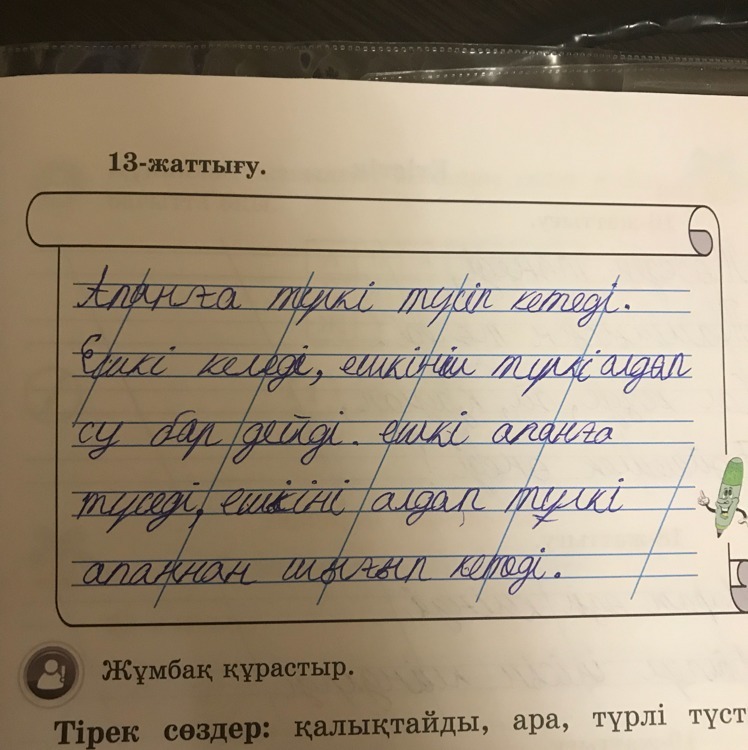 13-жаттығу.
Апанға түркі түсіп кетеді.
Ешкі келеді, ешкініи түркі алдап
су бар дейді. ешкі апанға
түседі, ешкіні алдап түлкі
апаннан шығып кетеді.
Жұмбақ құрастыр.
Тірек сөздер: қалықтайды, ара, түрлі түст